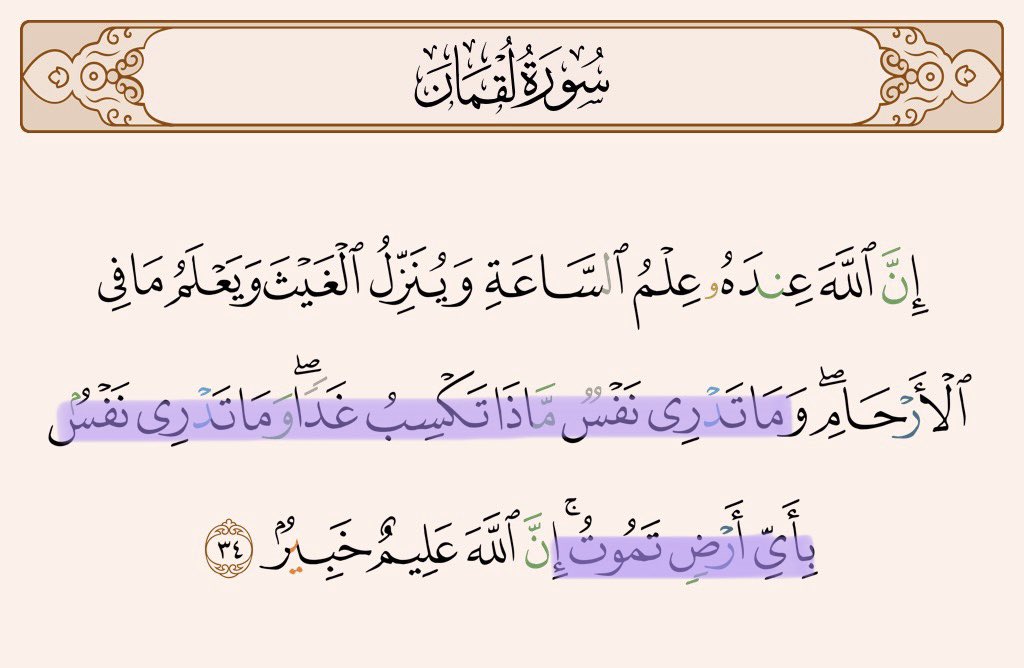 سُورَةُ لُقْمَانَ
إِنَّ ٱللَّهَ عِندَهُۥ عِلْمُ ٱلسَّاعَةِ وَيُنَزِّلُ ٱلْغَيْثَ وَيَعْلَمُ مَا فِى
ٱلْأَرْحَامِ ۖ وَمَا تَدْرِى نَفْسٌ مَّاذَا تَكْسِبُ غَدًا ۖ وَمَا تَدْرِى نَفْسٌۢ
بِأَىِّ أَرْضٍ تَمُوتُ ۚ إِنَّ ٱللَّهَ عَلِيمٌ خَبِيرٌۢ ٣٤